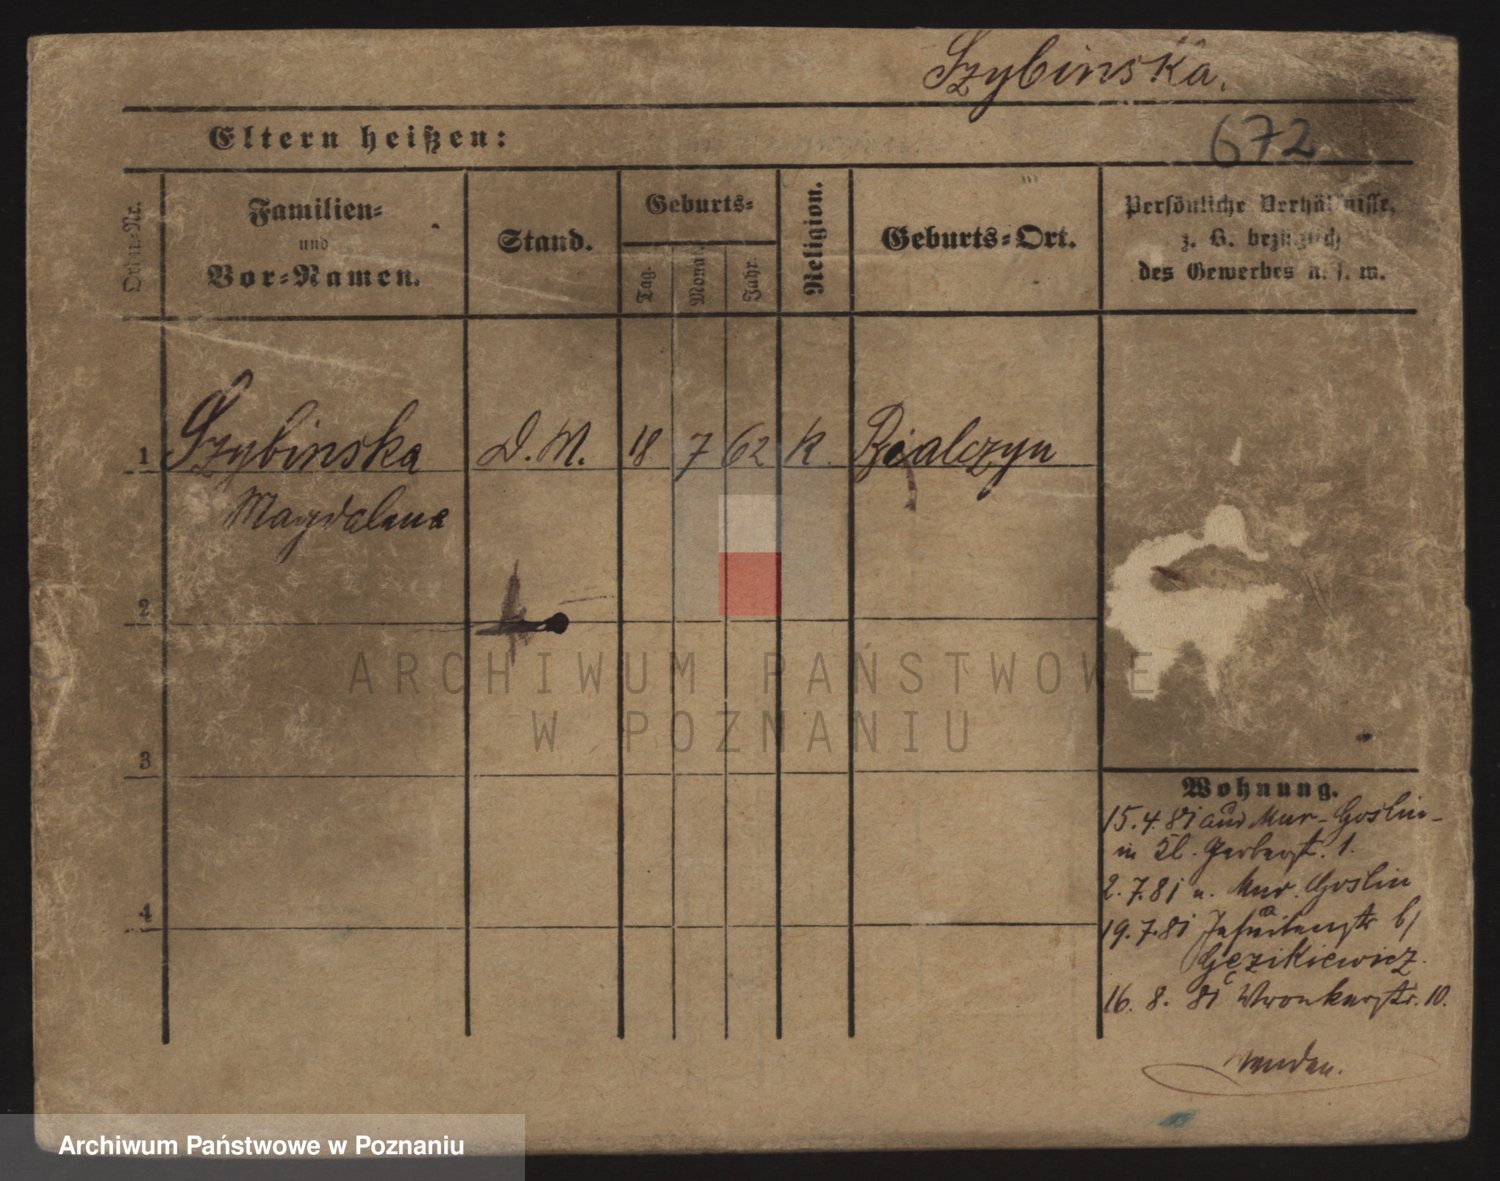 Szybinska.
Eltern heißen:
672
Familien=
und
Vor=Namen.
Stand.
Geburts=
Tag.
Monat.
Jahr.
Religion.
Geburts=Ort.
Persönliche Verhältnisse,
z. B. bezüglich
des Gewerbes u. s. w.
1 Szybinska D. M. 18 7 62 K. Bialczyn
Magdalena
2
ARCHIWUM PAŃSTWOWE
W POZNANIU
3
Wohnung.
15. 4. 81 aus Mur-Goslin-
in Kl. Gerberstr. 1.
2. 7. 81 n. Mur. Goslin
4
19. 7. 81 Jesuitenstr b/
16. 8. 81 Wronkerstr. 10.
Archiwum Państwowe w Poznaniu